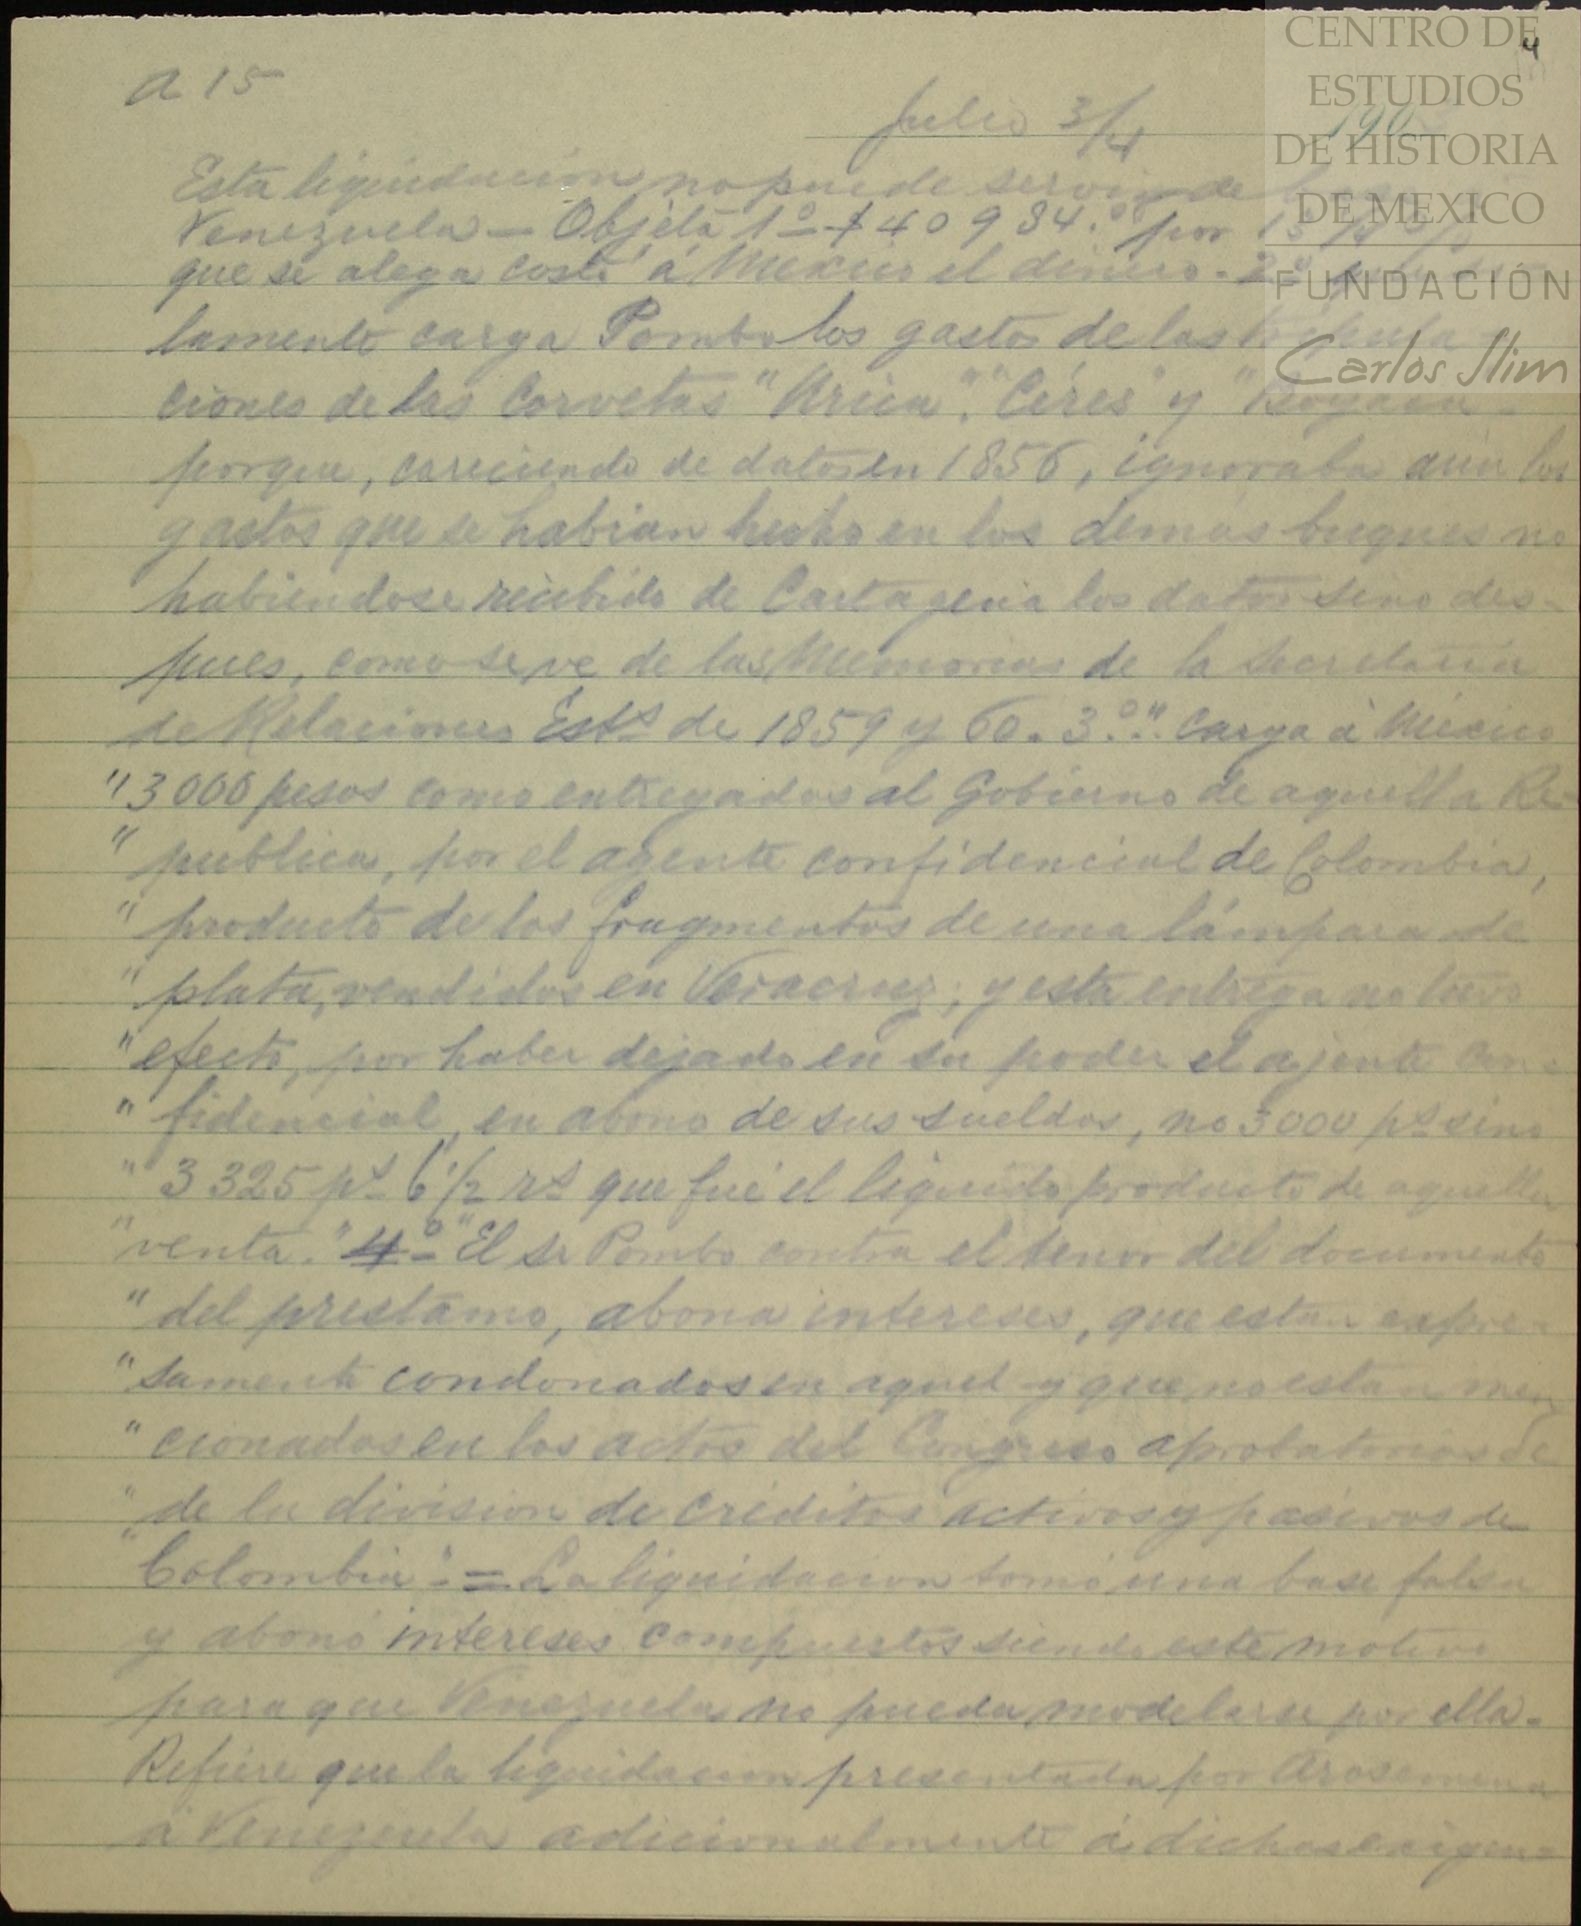 CENTRO DE
ESTUDIOS
DE HISTORIA
DE MEXICO
FUNDACIÓN
Carlos Slim
4
a 15
Julio 3/
Esta liquidacion no puede servir de
Venezuela — Objeta 1º $ 40 984.ºº por
que se alega costó á Mexico el dinero. 2º
lamente carga Pombo los gastos de las tripula-
ciones de las Corvetas "Urica", "Céres" y "Boyacá"
porque, careciendo de datos en 1856, ignoraba aun los
gastos que se habian hecho en los demás buques no
habiendose recibido de Cartagena los datos sino des-
pues, como se ve de las Memorias de la Secretaria
de Relaciones Ests de 1859 y 60. 3.º " Carga á México
" 3 000 pesos como entregados al Gobierno de aquella Re-
" publica, por el agente confidencial de Colombia,
" producto de los fragmentos de una lámpara de
" plata, vendidos en Veracruz; y esta entrega no tuvo
" efecto, por haber dejado en su poder el ajente con-
" fidencial, en abono de sus sueldos, no 3 000 ps sino
" 3 325 ps 6 1/2 rs que fué el liquido producto de aquella
" venta." 4º "El Sr Pombo contra el tenor del documento
" del prestamo, abona intereses, que estan expre-
" samente condonados en aquel y que no estan men
" cionados en los actos del Congreso aprobatorios de
" de la division de créditos activos y pasivos de
" Colombia" = La liquidacion tomó una base falsa
y abonó intereses compuestos siendo este motivo
para que Venezuela no pueda modelarse por ella.
Refiere que la liquidacion presentada por Arosemena
á Venezuela adicionalmente á dichas exigen-